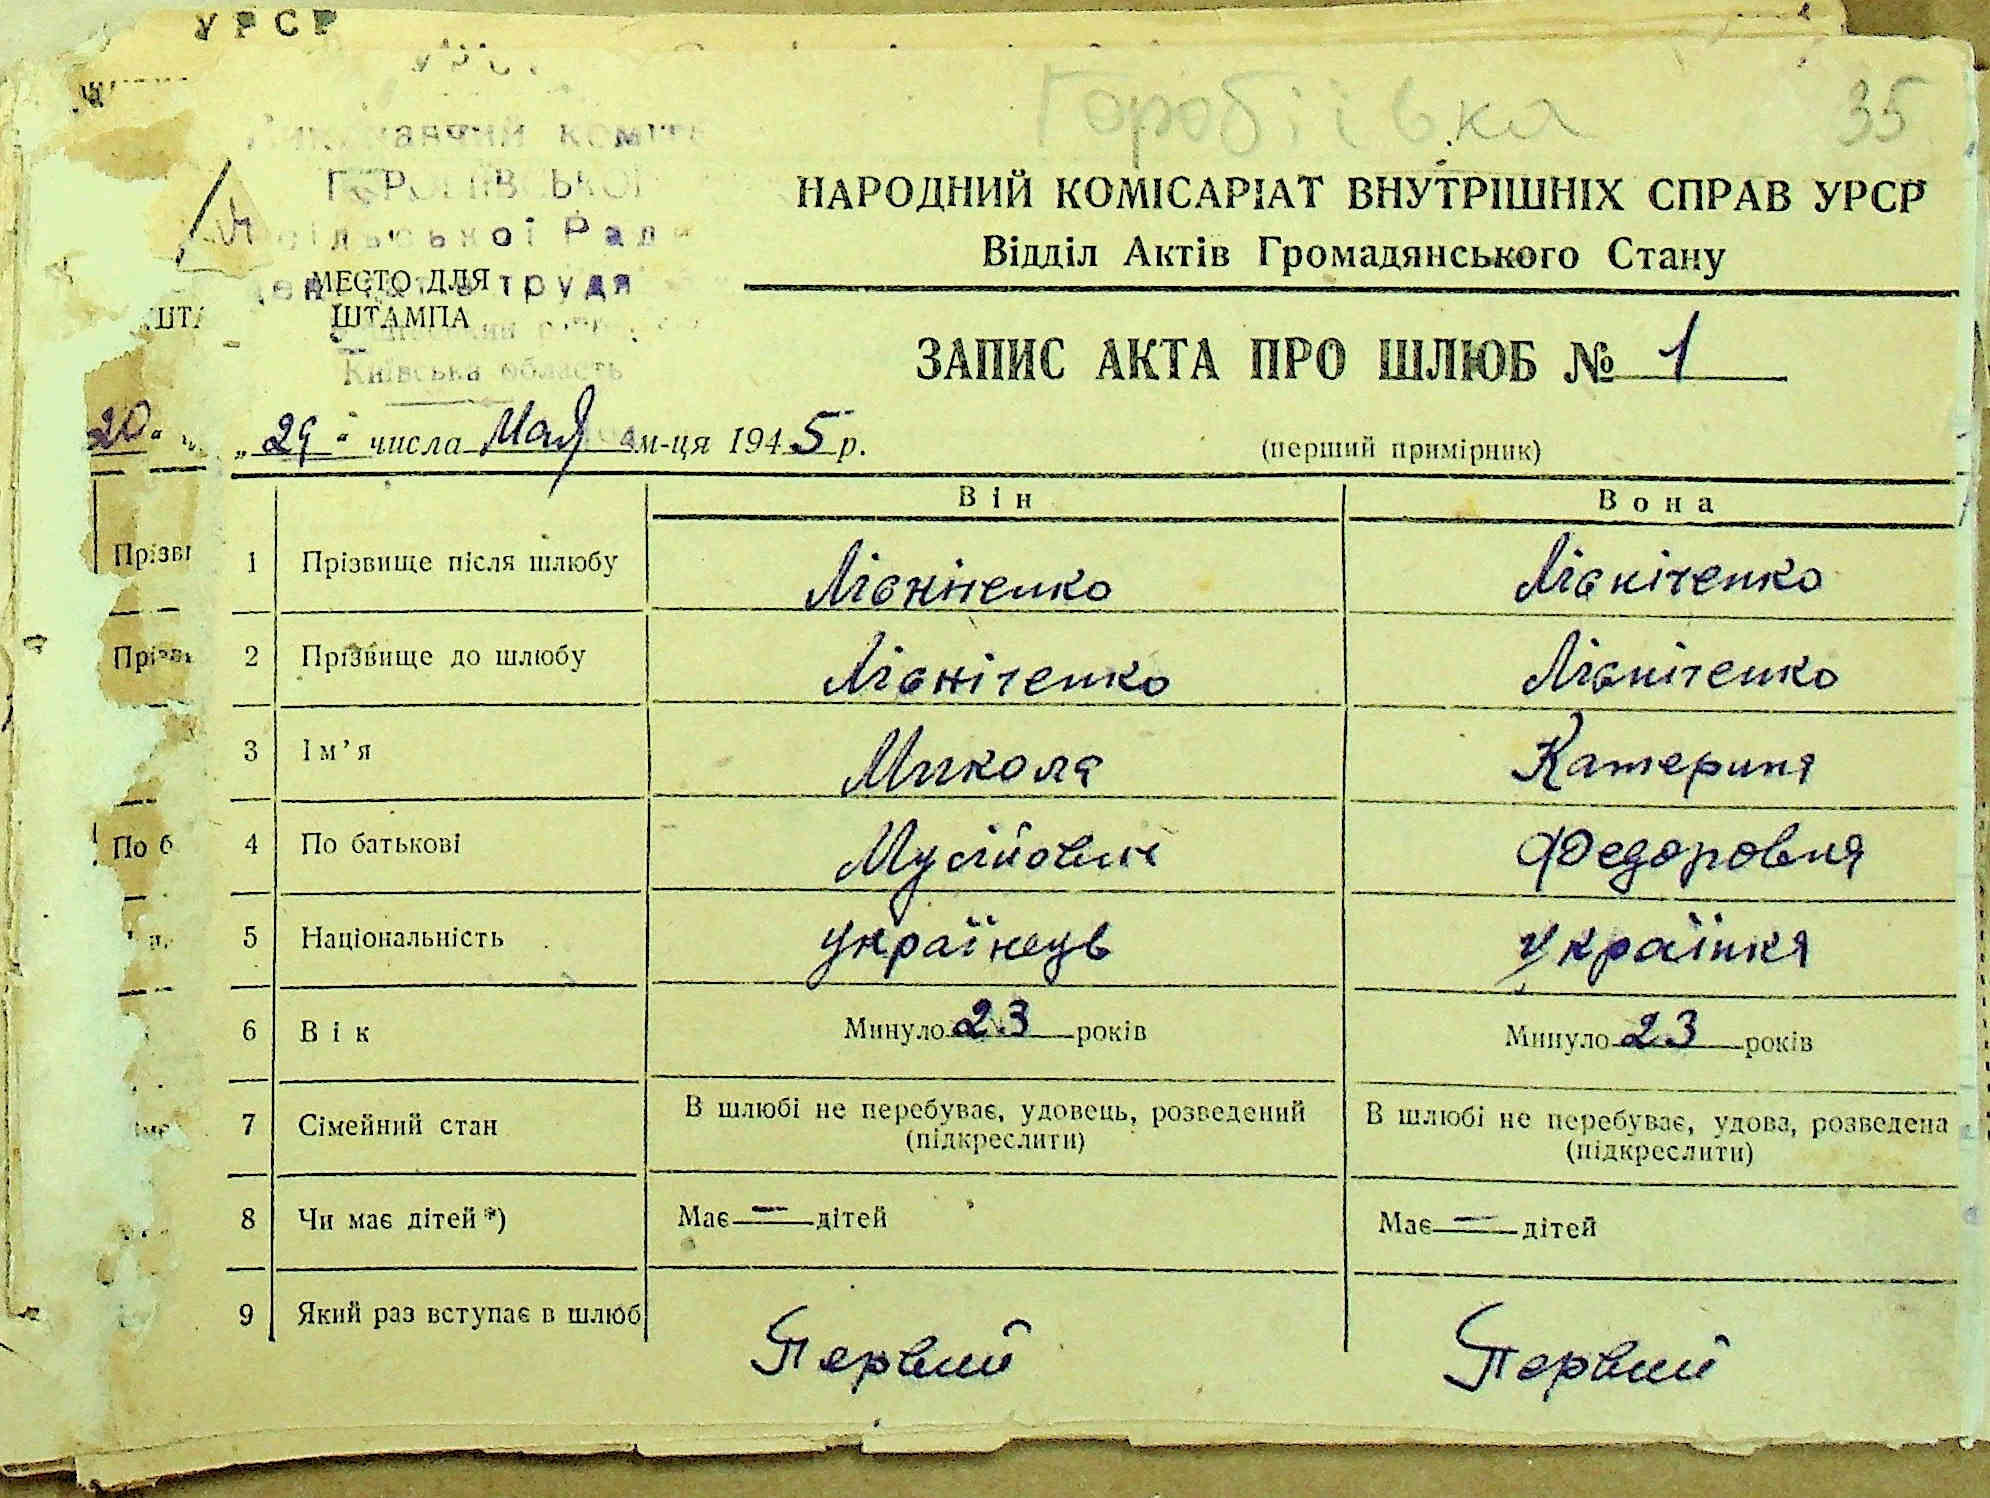 УРСР
Горобіївка
35
НАРОДНИЙ КОМІСАРІАТ ВНУТРІШНІХ СПРАВ УРСР
Відділ Актів Громадянського Стану
сільської Рад
МЕСТО ДЛЯ
ШТАМПА
Київська область
ЗАПИС АКТА ПРО ШЛЮБ № 1
20
„29“ числа Мая м-ця 1945 р.
(перший примірник)
Він Вона
1 Прізвище після шлюбу Лівніченко Лівніченко
2 Прізвище до шлюбу Лівніченко Лівніченко
3 Ім’я Микола Катерина
4 По батькові Мусійович Федоровна
5 Національність українець українка
6 Вік Минуло 23 років Минуло 23 років
7 Сімейний стан В шлюбі не перебуває, удовець, розведений (підкреслити) В шлюбі не перебуває, удова, розведена (підкреслити)
8 Чи має дітей*) Має — дітей Має — дітей
9 Який раз вступає в шлюб Первий Первий